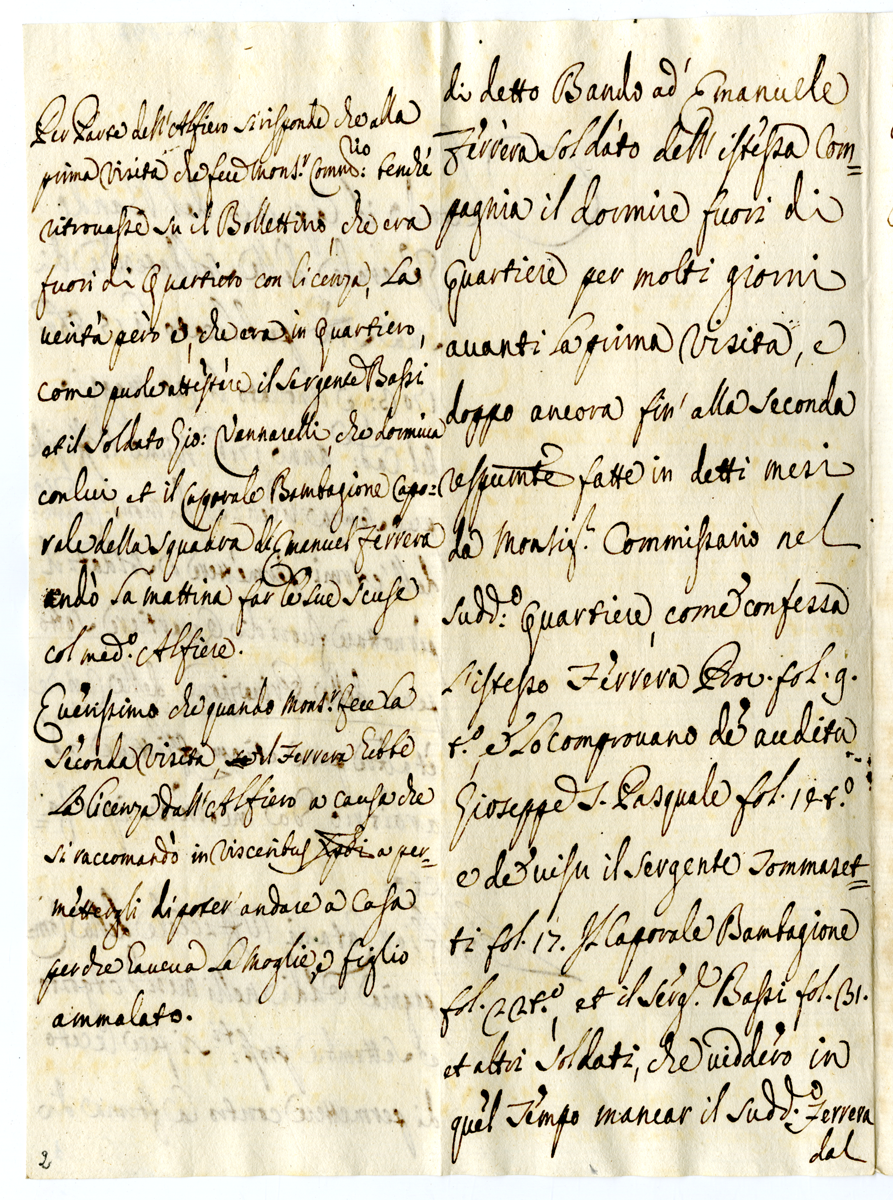 Per Parte dell'Alfiero si risponde che alla
prima visita che fece Mons.r Comm.rio: benché
ritrovasse su il Bollettino, che era
fuori di Quartiero con licenza, La
verità però è, che era in Quartiero,
come puole attestare il Sergente Bassi
et il Soldato Gio: Vannarelli, che dormiva
con lui, et il Caporale Bambagione Capo=
rale della squadra di Emanuel Ferrera
andò la mattina far le sue scuse
col med.o Alfiere.
È verissimo che quando Mons.r fece La
seconda visita, il Ferrera hebbe
La licenza dall'Alfiero a causa che
si raccomandò in visceribus Xpti a per=
mettergli di poter' andare a Casa
perche haveva La Moglie, e figlio
ammalato.
2
di detto Bando ad' Emanuele
Ferrera soldato dell'istessa Com=
pagnia il dormire fuori di
Quartiere per molti giorni
avanti La prima Visita, e
doppo ancora fin' alla seconda
respuntè fatte in detti mesi
da Monsig.r Commissario nel
sudd.o: Quartiere, come confessa
L'istesso Ferrera Proc. fol. 9.
t.o, e Lo comprovano de auditu
Gioseppe S. Pasquale fol. 14 t.o
e de visu il Sergente Tommaset=
ti fol. 17. Il Caporale Bambagione
fol. 22 t.o, et il Serg.te Bassi fol. 31.
et altri soldati, che viddero in
quel Tempo mancar il sudd.o: Ferrera
dal